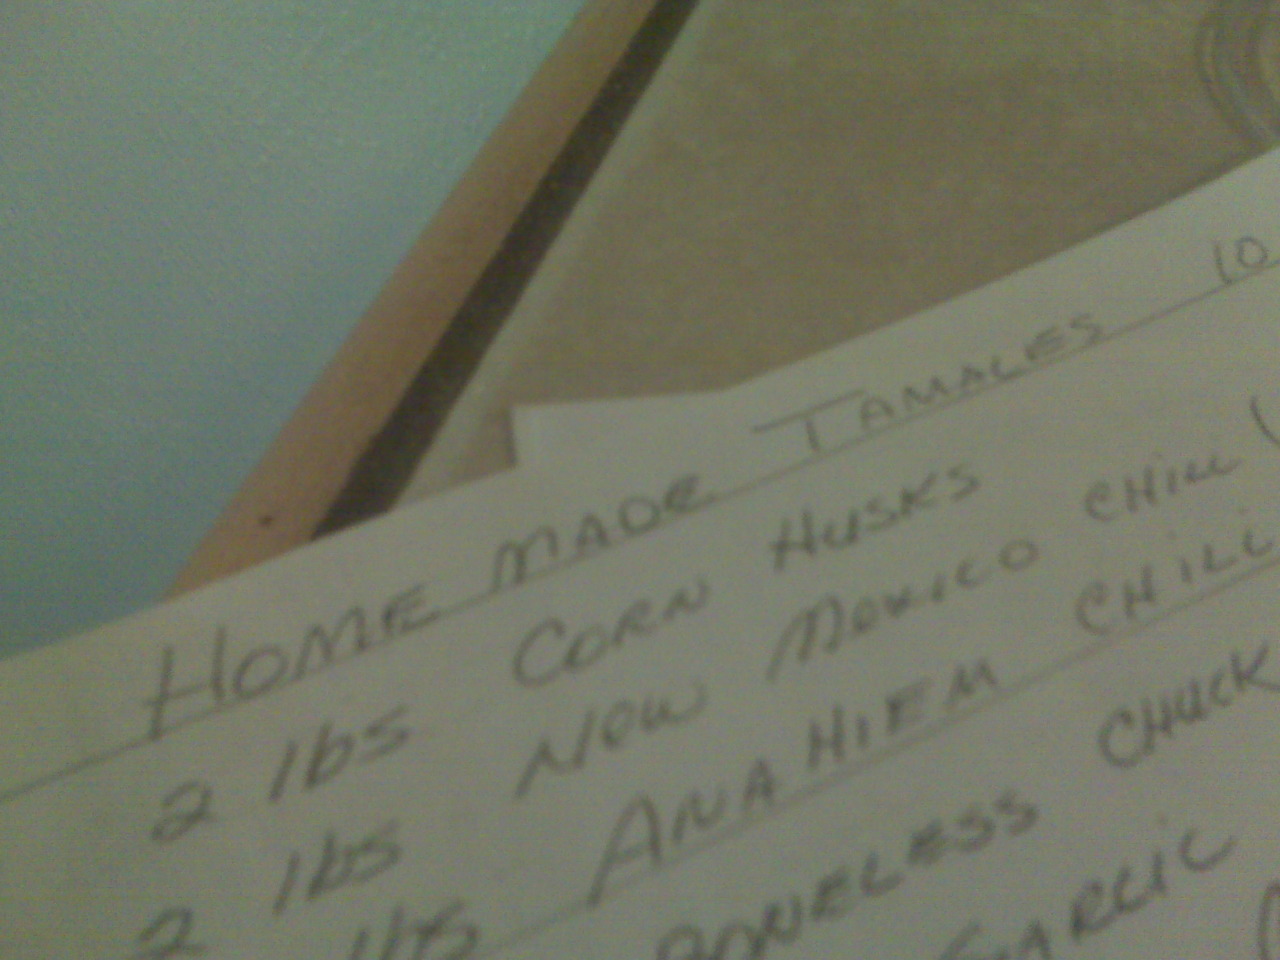 HOME MADE TAMALES 10
2 lbs CORN HUSKS
2 lbs New Mexico CHILI (
lbs ANAHIEM CHILI
BONELESS CHUCK
GARLIC (